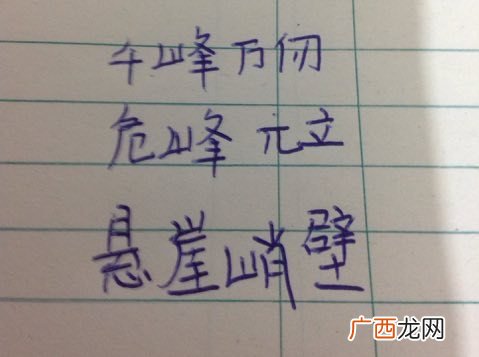 千峰万仞
危峰兀立
悬崖峭壁
广西龙网